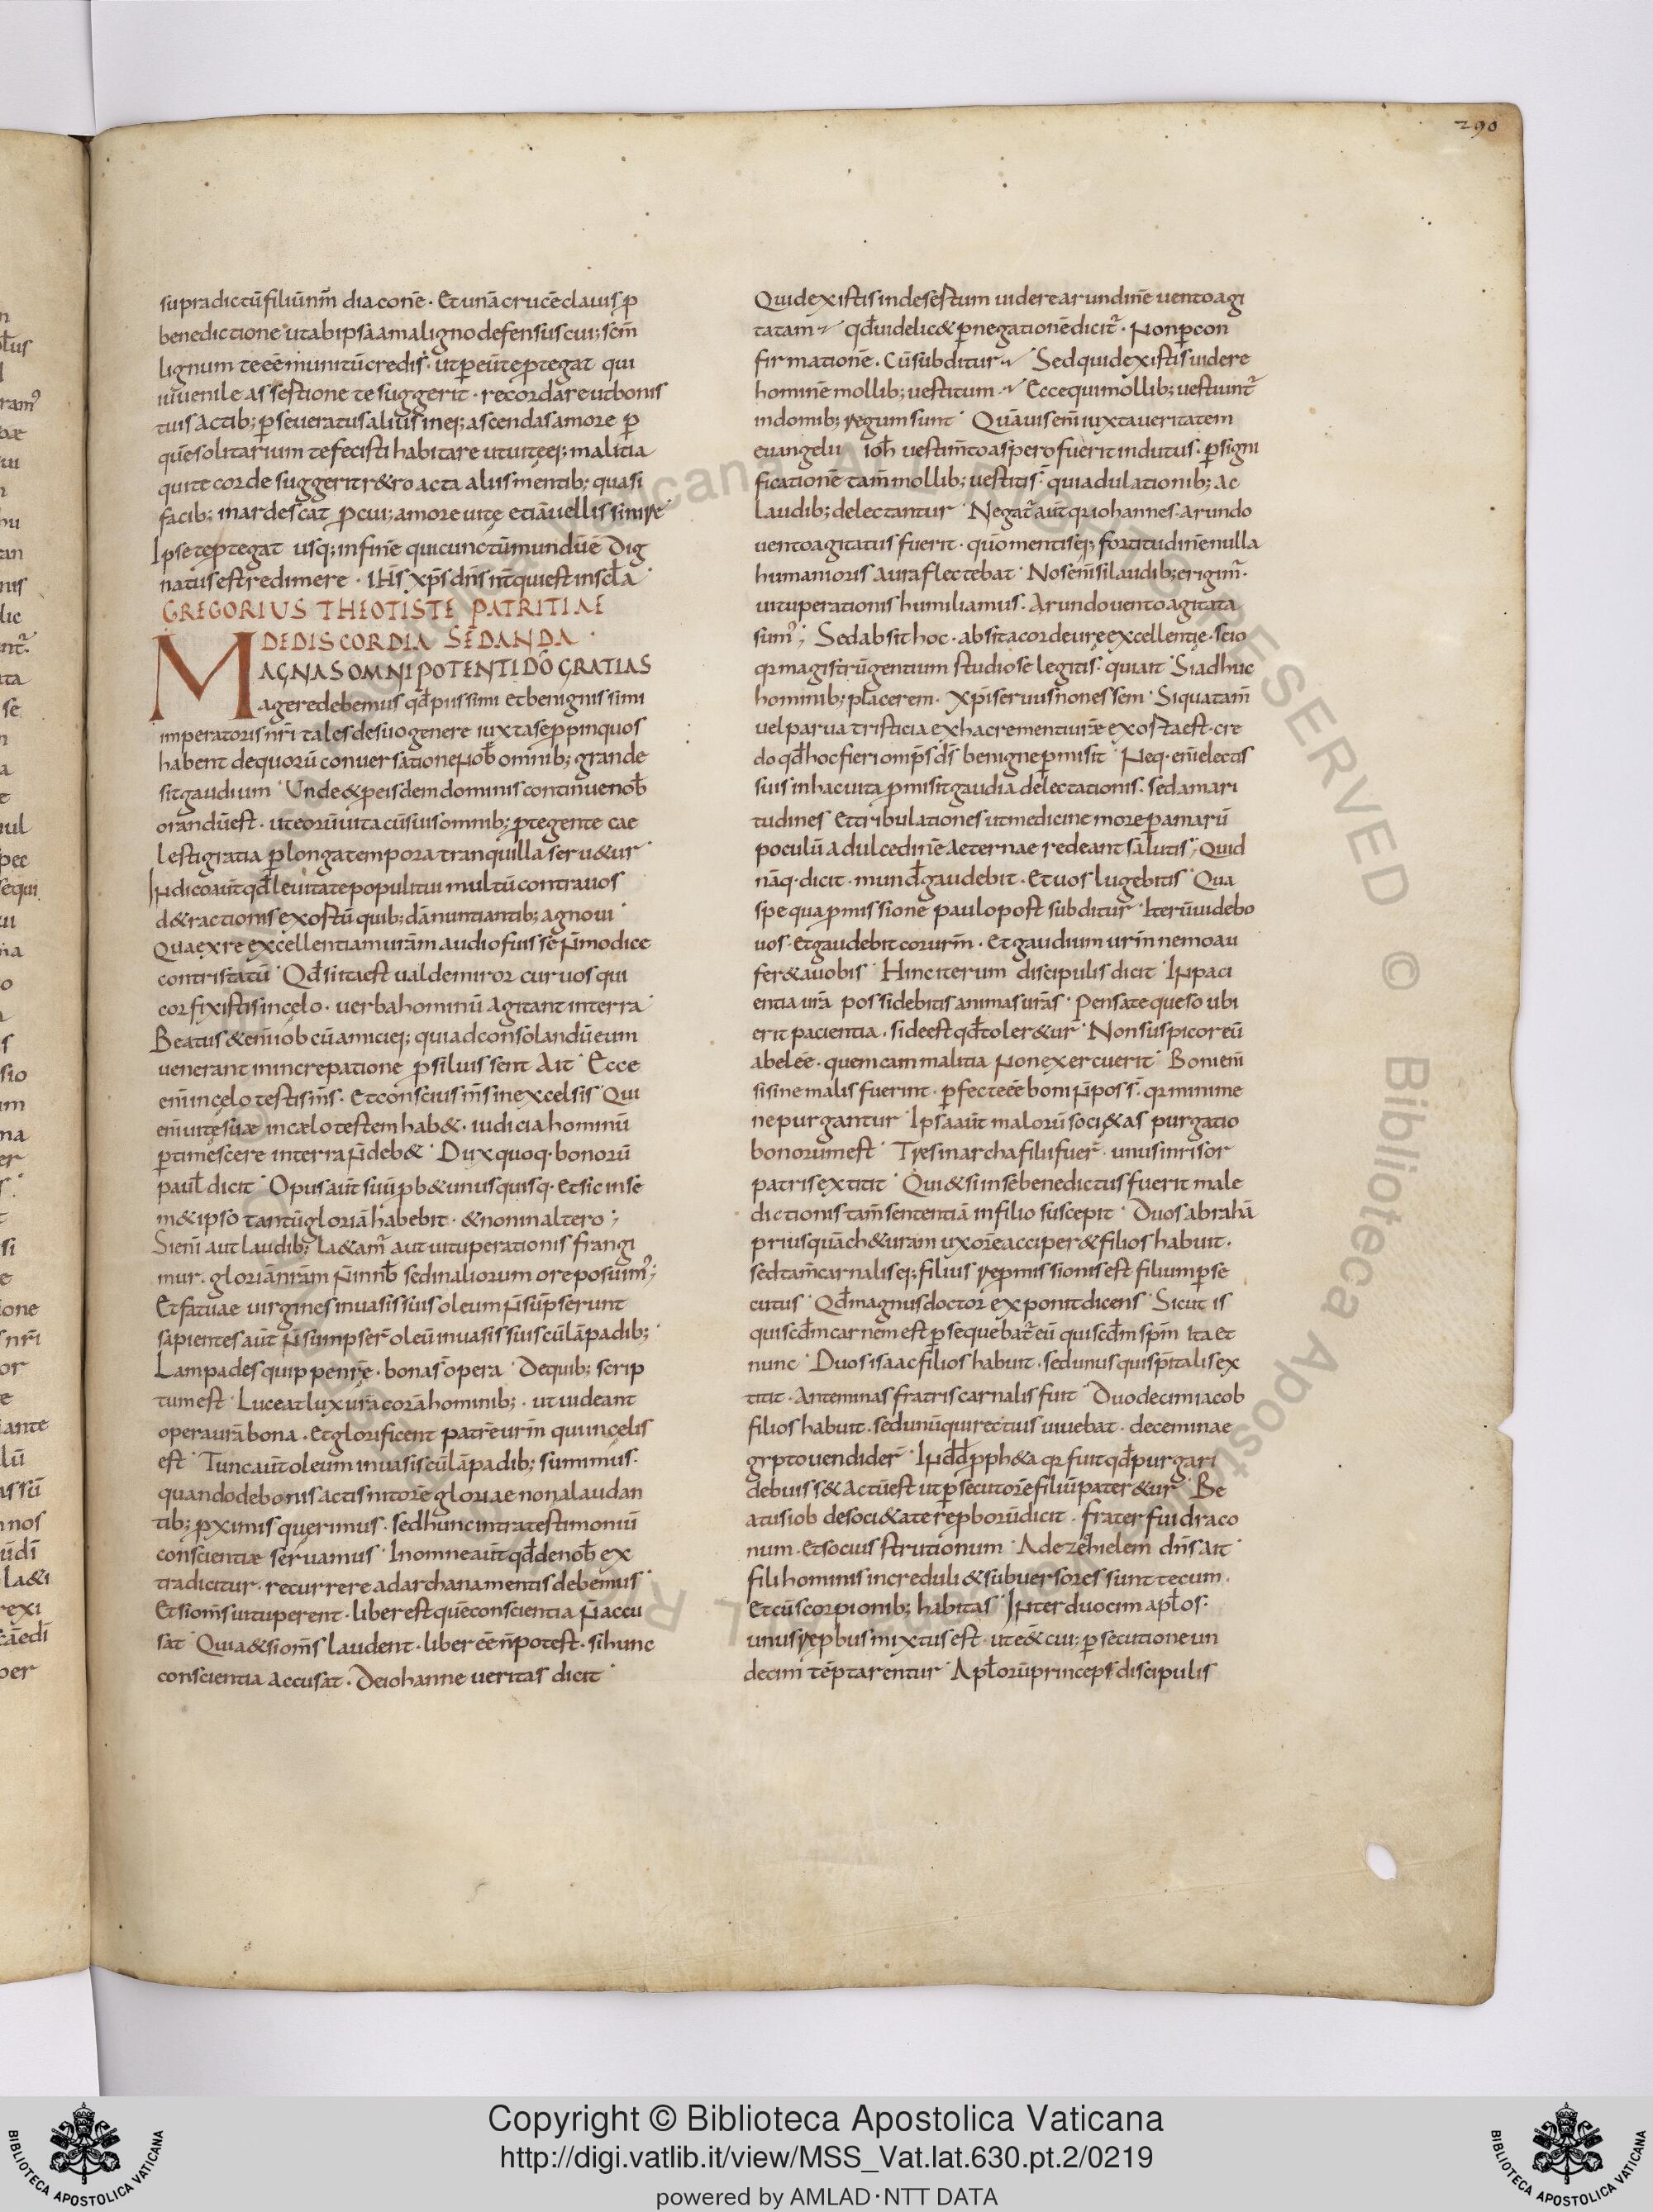 290
supradictū filiū nr̄m diaconē · Et unā crucē clauis p
benedictione ut ab ipsa a maligno defensus cui; scm̄
lignum te eē munitū credis · ut p eū te ptegat qui
iuuenile assestione te suggerit · recordare ut bonis
tuis actib; pseueratus alius in eq; ascendas amore p
quē solitarium te fecisti habitare ut uiteq; malitia
qui te corde suggerit r&ro acta alus mentib; quasi
facib; inardescat p cui; amore uitę etiā uellis sinire
Ipse te ptegat usq; in finē qui cunctū mundū ē Dig
natus est redimere · ih̄s xp̄s dn̄s nt̄ qui est in scl̄a
GREGORIUS THEOTISTE PATRITIAE
DE DISCORDIA SEDANDA ·
MAGNAS OMNIPOTENTI DŌ GRATIAS
agere debemus qd̄ piissimi et benignissimi
imperatoris nr̄i tales de suo genere iuxta se ppinquos
habent de quorū conuersatione nob̄ omnib; grande
sit gaudium · Unde & p eisdem dominis continue nob̄
orandū est · ut eorū uita cū suis omnib; ptegente cae
lesti gratia p longa tempora tranquilla seru&ur ·
Indico aut̄ qd̄ leuitate populi tui multū contra uos
d&ractionis exostū quib;dā nuntiantib; agnoui ·
Qua ex re excellentiam urām audio fuisse n̄ modice
contristatū · Qd̄ si ita est ualde miror cur uos qui
cor fixistis in cęlo · uerba hominū agitant in terra ·
Beatus &enī iob cū amici eq; qui ad consolandū eum
uenerant in increpatione psiluissent Ait · Ecce
enī in cęlo testis m̄s · Et conscius m̄s in excelsis · Qui
enī uitę suæ in cælo testem hab& · iudicia hominū
ptimescere in terra n̄ deb& · Dux quoq · bonorū
paul̄ dicit · Opus aut̄ suū pb& unusquisq · Et sic in se
m&ipso tantū gloriā habebit · & non in altero ;
Si enī aut laudib; la&am̄ aut uituperationis frangi
mur · gloriā nrām n̄ in nob̄ sed in aliorum ore posuim̄ ;
Et fatuae uirgines in uasis suis oleum n̄ sūpserunt
sapientes aut̄ n̄ sumpser̄ oleū in uasis suis cū lāpadib; ·
Lampades quippe nrę · bonas opera · De quib; scrip
tum est · Luceat lux urā corā hominib; · ut uideant
opera urā bona · Et glorificent patrē urm̄ qui in cęlis
est · Tunc aut̄ oleum in uasis cū lāpadib; sumimus ·
quando de bonis actis nitorē gloriae non a laudan
tib; pximis querimus · sed hunc intra testimoniū
conscientiæ seruamus · In omne aut̄ qd̄ de nob̄ ex
tra dicitur · recurrere ad archana mentis debemus ·
Et si om̄s uituperent · liber est quē conscientia n̄ accu
sat · Quia & si om̄s laudent · liber eē n̄ potest · si hunc
conscientia accusat · De iohanne ueritas dicit ·
Quid existis in desestum uidere arundinē uento agi
tatam · qd̄ uidelic& p negationē dicit̄ · Non p con
firmationē · Cū subditur · Sed quid existis uidere
hominē mollib; uestitum · Ecce qui mollib; uestiunt̄
in domib; regum sunt · Quāuis enī iuxta ueritatem
euangelii ioh̄ uestim̄to aspero fuerit indutus · p signi
ficationē tam̄ mollib; uestitis · qui adulationib; ac
laudib; delectantur · Negat̄ aut̄ qr iohannes · arundo
uento agitatus fuerit · quo mentis eq; fortitudinē nulla
humanioris aura flectebat · Nos enī si laudib; erigim̄ ·
uituperationis humiliamus · Arundo uento agitata
sum̄ ; Sed absit hoc · absit a corde urę excellentię · scio
qr magistrū gentium studiose legitis · qui ait · Si adhuc
hominib; placerem · Xp̄i seruus non essem · Si qua tam̄
uel parua tristicia ex hac re menti uræ exosta est · cre
do qd̄ hoc fieri omps̄ ds̄ benigne pmisit · Neq · enī electis
suis in hac uita pmisit gaudia delectationis · sed amari
tudines Et tribulationes ut medicine more p amarū
poculū ad ulcedinē aeternae redeant salutis ; Quid
nāq · dicit · mund̄ gaudebit · Et uos lugebitis · Qua
spe qua pmissione paulo post subditur · Iterū uidebo
uos · Et gaudebit cor urm̄ · Et gaudium urm̄ nemo au
fer& a uobis · Hinc iterum discipulis dicit · In paci
entia urā possidebitis animas urās · Pensate queso ubi
erit pacientia · si deest qd̄ toler&ur · Non suspicor eū
abel eē · quem cain malitia non exercuerit · Boni enī
si sine malis fuerint · pfecte eē boni n̄ poss̄ · qr minime
ne purgantur · Ipsa aut̄ malorū soci&as purgatio
bonorum est · Tres in archa filii fuer̄ · unus inrisor
patris extitit · Qui & si in se benedictus fuerit male
dictionis tam̄ sententiā in filio suscepit · Duos abrahā
prius quā ch&uram uxorē acciper& filios habuit ·
sed tam̄ carnalis eq; filius repmissionis est filium pse
cutus · Qd̄ magnus doctor exponit dicens · Sicut is
qui scd̄m carnem est psequebat̄ eū qui scd̄m spm̄ Ita et
nunc · Duos isaac filios habuit · sed unus qui spitalis ex
titit · Ante minas fratris carnalis fuit · Duodecim iacob
filios habuit · sed unū qui rectius uiuebat · decem in ae
grpto uendider̄ · In dd̄ pph&a qr fuit qd̄ purgari
debuiss& actū est ut psecutorē filiū pater&ur · Be
atus iob de soci&ate repborū dicit · frater fui draco
num · Et socius strutionum · Ad ezehielem dn̄s ait ·
fili hominis increduli & subuersores sunt tecum ·
Et cū scorpionib; habitas · Inter duocim apl̄os ·
unus repbus mixtus est · ut e& cui; psecutione un
decim tēptarentur · Apl̄orū princeps discipulis
Copyright © Biblioteca Apostolica Vaticana
http://digi.vatlib.it/view/MSS_Vat.lat.630.pt.2/0219
powered by AMLAD·NTT DATA
BIBLIOTECA APOSTOLICA VATICANA
BIBLIOTECA APOSTOLICA VATICANA